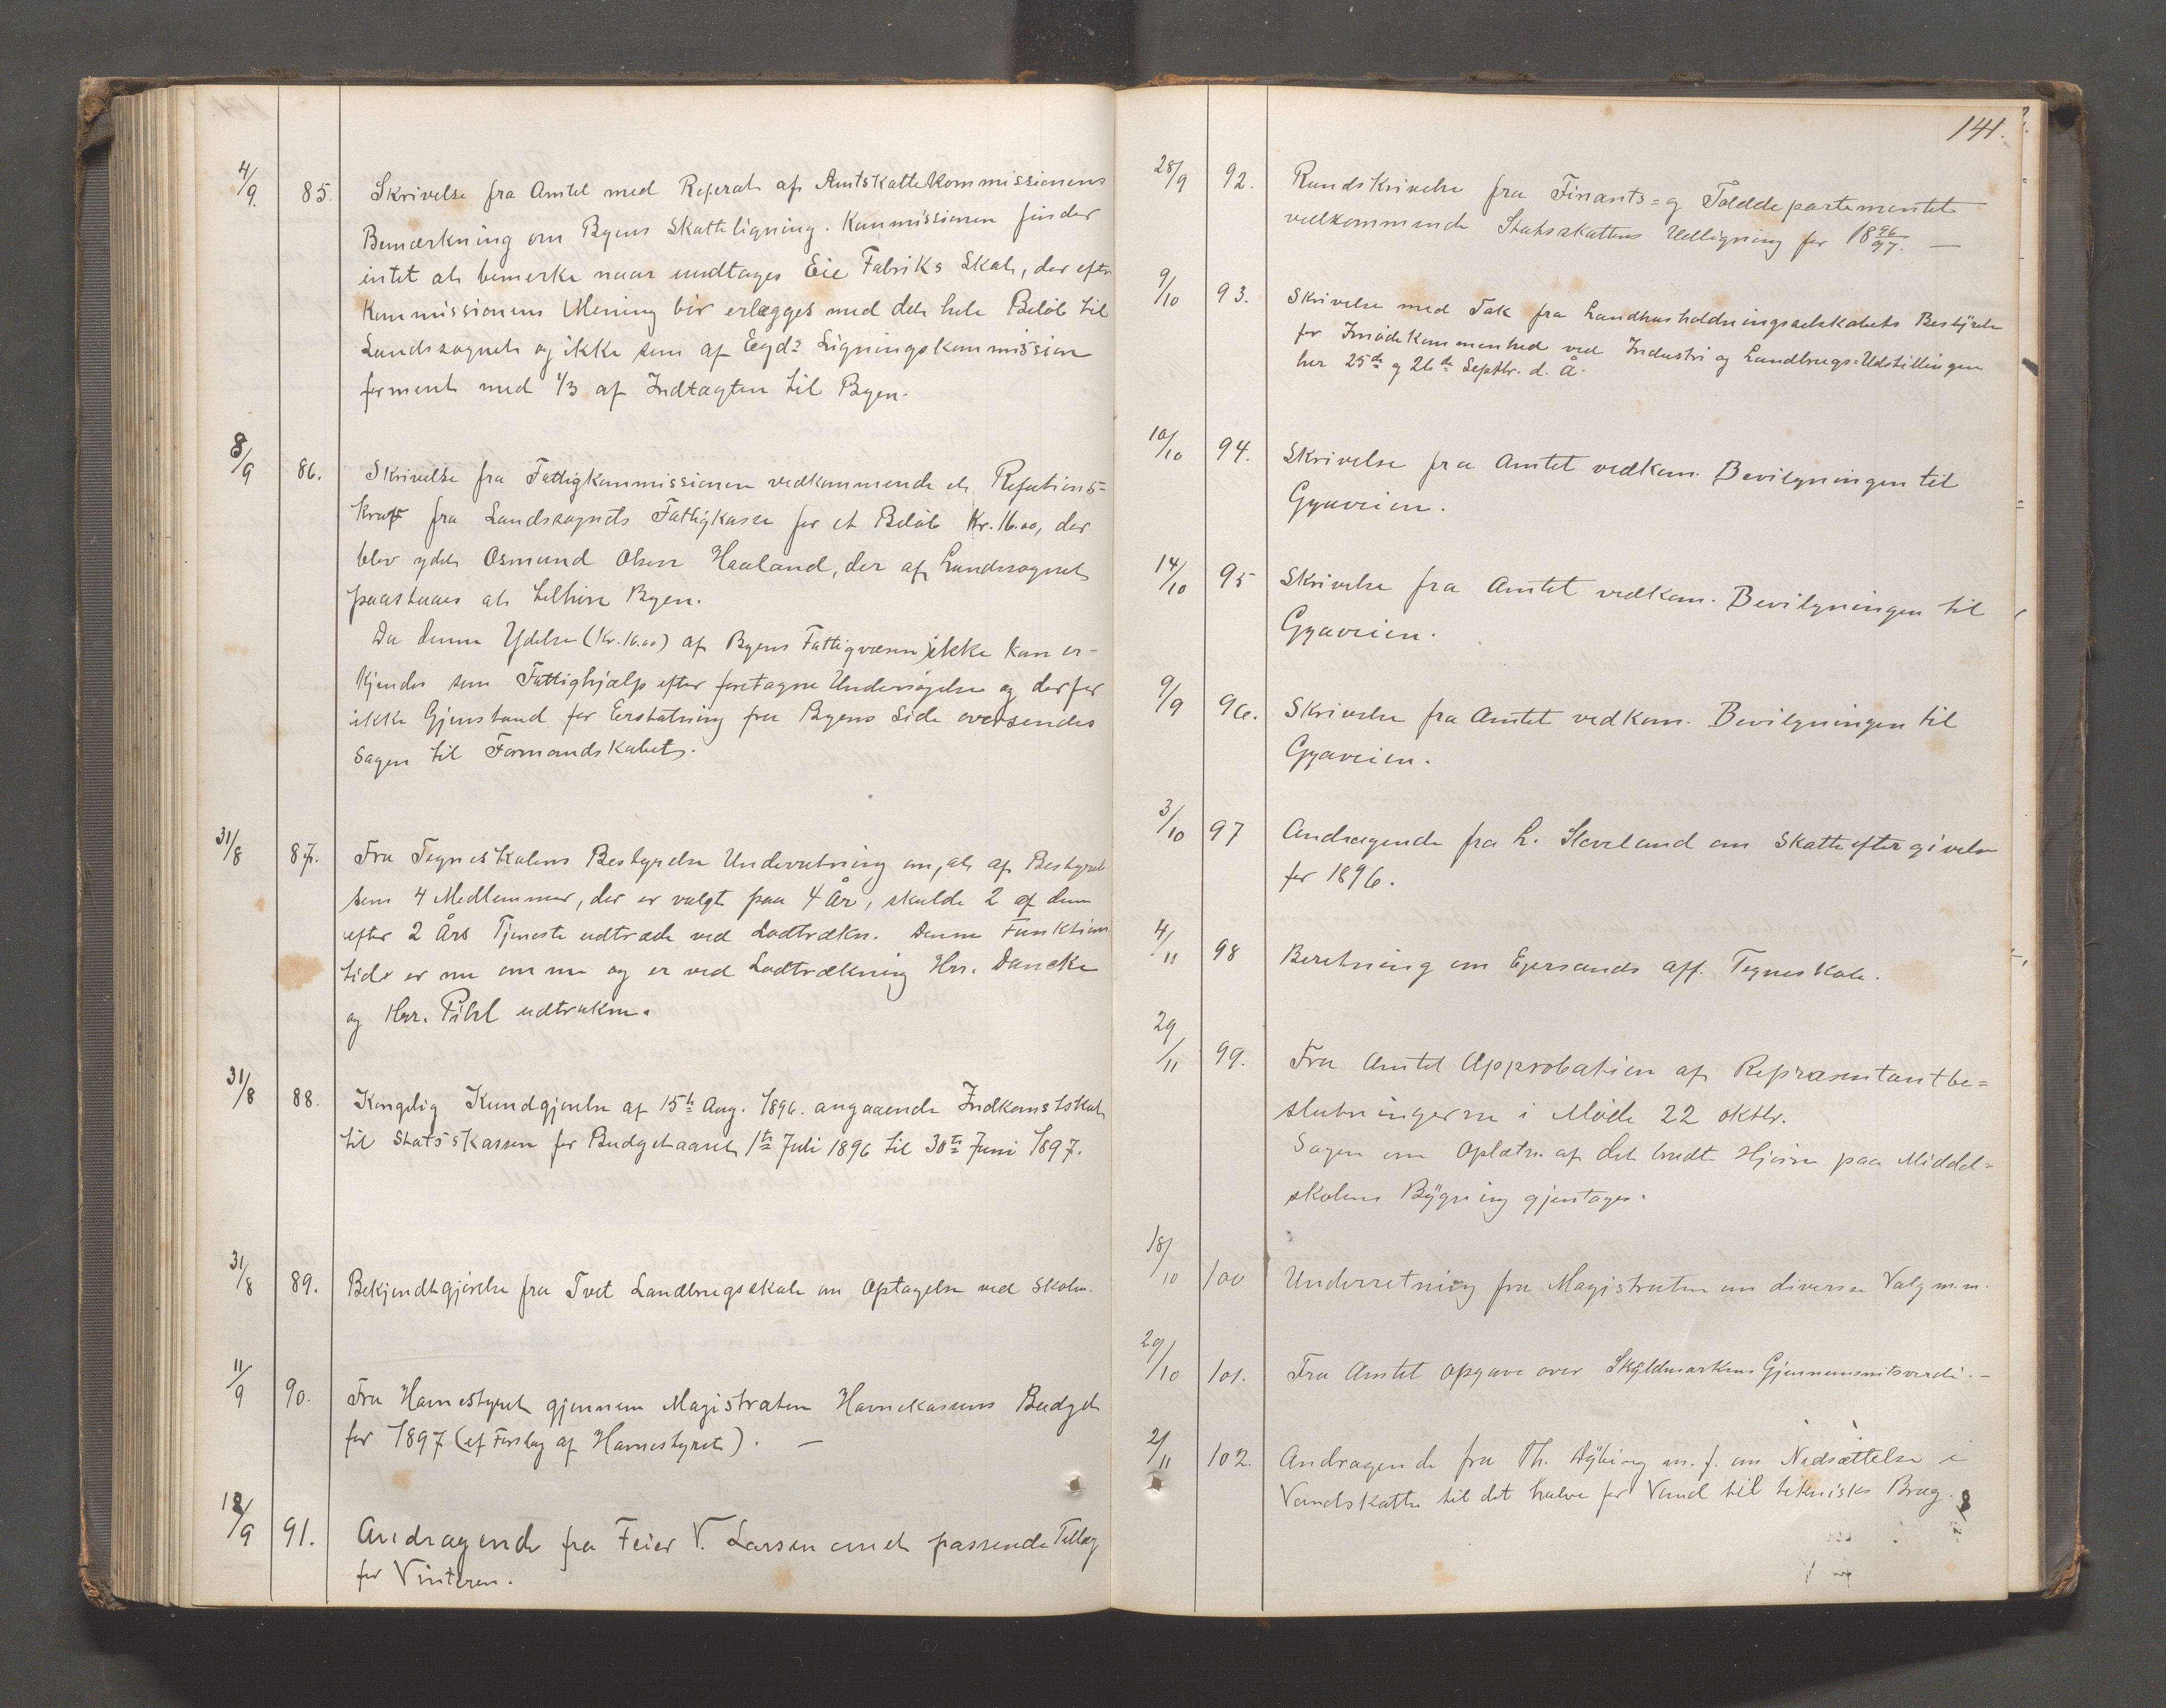 4/9. 85. Skrivelse fra Amtet med Referat af Amtskattekommissionens
Bemærkning om Byens Skatteligning. Kommissionen finder
intet at bemerke naar undtages Eie Fabriks Skat, der efter
Kommissionens Mening bør erlægges med det hele Beløb til
Landssognet og ikke som af Egds Ligningskommission
forment med 1/3 af Indtægten til Byen.
8/9 86. Skrivelse fra Fattigkommissionen vedkommende et Refutions-
krav fra Landsognets Fattigkasse for et Beløb Kr. 16.00, der
blev ydet Osmund Olsen Haaland, der af Landsognet
paastaaes at tilhøre Byen.
Da denne Ydelse (Kr. 16.00) af Byens Fattigvæsen ikke kan er-
kjendes som Fattighjælp efter foretagne Undersøgelse og derfor
ikke Gjenstand for Erstatning fra Byens Side oversendes
Sagen til Formandskabet.
31/8 87. Fra Tegneskolens Bestyrelse Underretning om, at af Bestyrel
sens 4 Medlemmer, der er valgt paa 4 År, skulde 2 af dem
efter 2 Års Tjeneste udtræde ved Lodtrækn. Denne Funktions
tid er nu omme og er ved Lodtrækning Hrr. Dancke
og Hrr. Pihl udtrukne.
31/8 88. Kongelig Kundgjørelse af 15de Aug. 1896. angaaende Indkomstskat
til Statsskassen for Budgetaaret 1te Juli 1896 til 30te Juni 1897.
31/8 89. Bekjendtgjørelse fra Tvet Landbrugsskole om Optagelse ved Skolen.
11/9 90. Fra Havnestyret gjennem Magistraten Havnekassens Budget
for 1897 (ef Forslag af Havnestyret). —
12/9 91. Andragende fra Feier V. Larsen om et passende Tillæg
for Vinteren.
141.
28/9 92. Rundskrivelse fra Finants- og Tolddepartementet
vedkommende Statsskattens Udligning for 1896/97. —
9/10 93. Skrivelse med Tak fra Landhusholdningsselskabets Bestyrelse
for Imødekommenhed ved Industri og Landbrugs-Udstillingen
her 25de og 26de Septbr. d. Å.
10/10 94. Skrivelse fra Amtet vedkom. Bevilgningen til
Gyaveien.
14/10 95 Skrivelse fra Amtet vedkom. Bevilgningen til
Gyaveien.
9/9 96. Skrivelse fra Amtet vedkom. Bevilgningen til
Gyaveien.
3/10 97 Andragende fra L. Sleveland om Skatteeftergivelse
for 1896.
4/11 98 Beretning om Egersunds aff. Tegneskole.
29/11 99. Fra Amtet Approbation af Repræsentantbe-
slutningerne i Møde 22 oktbr.
Sagen om Oplatn. af det brudte Hjørne paa Middel-
skolens Bygning gjentages.
18/10 100 Underretning fra Magistraten om diverse Valg m.m.
29/10 101. Fra Amtet Opgave over Skyldmarkens Gjennemsnitsværdi. —
2/11 102. Andragende fra Th. Dybing m. f. om Nedsættelse i
Vandskatten til det halve for Vand til teknisk Brug.